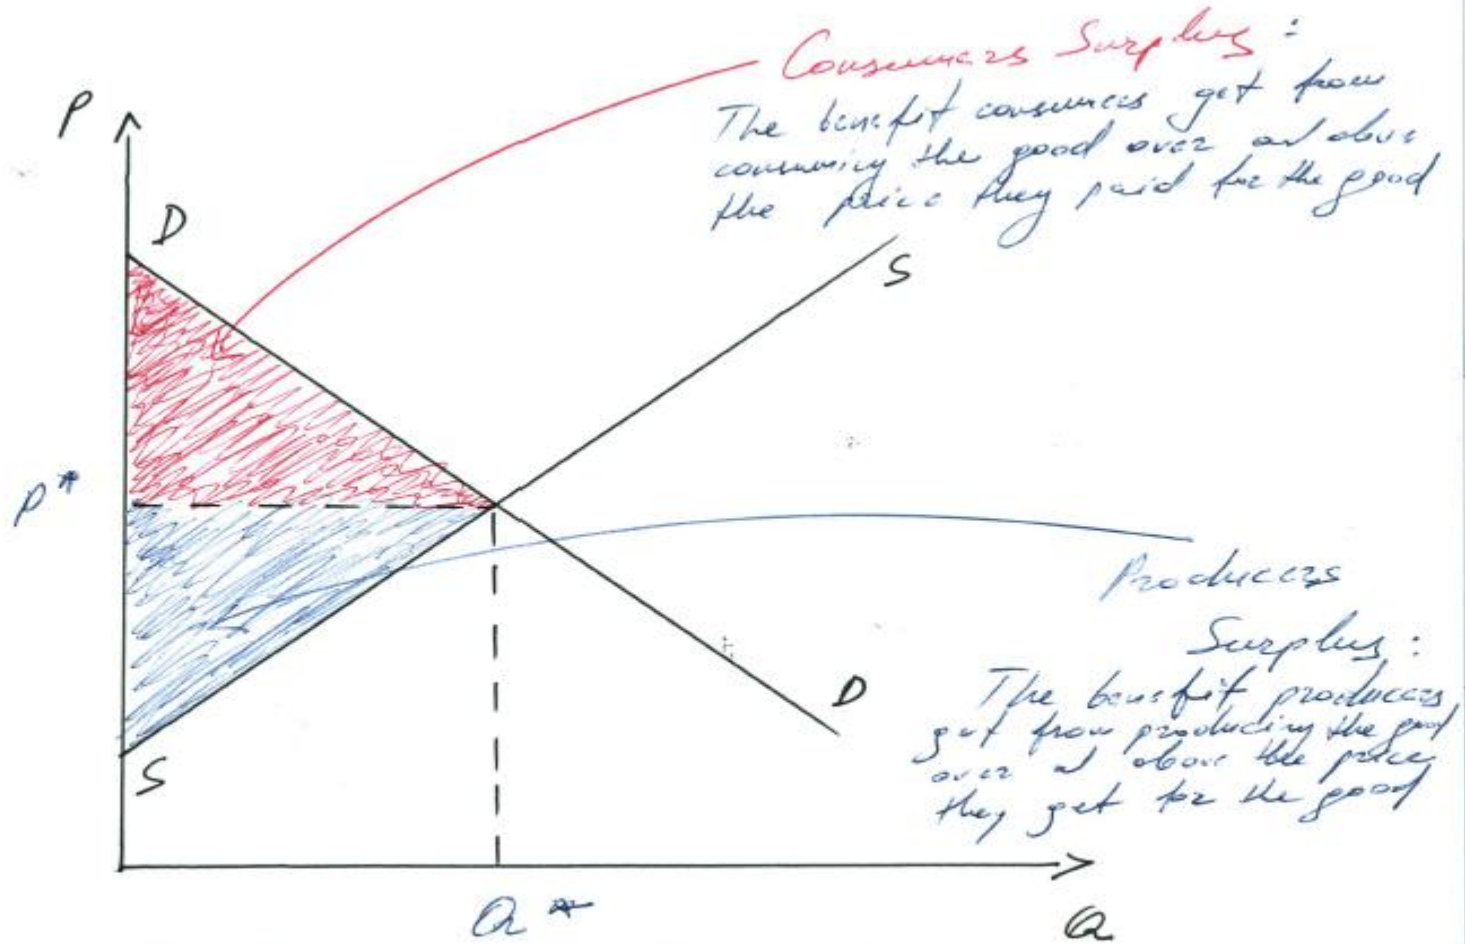 Consumers Surplus :
The benefit consumers get from
consuming the good over and above
the price they paid for the good
P
D
S
P*
Producers
Surplus :
The benefit producers
get from producing the good
over and above the price
they get for the good
D
S
Q*
Q